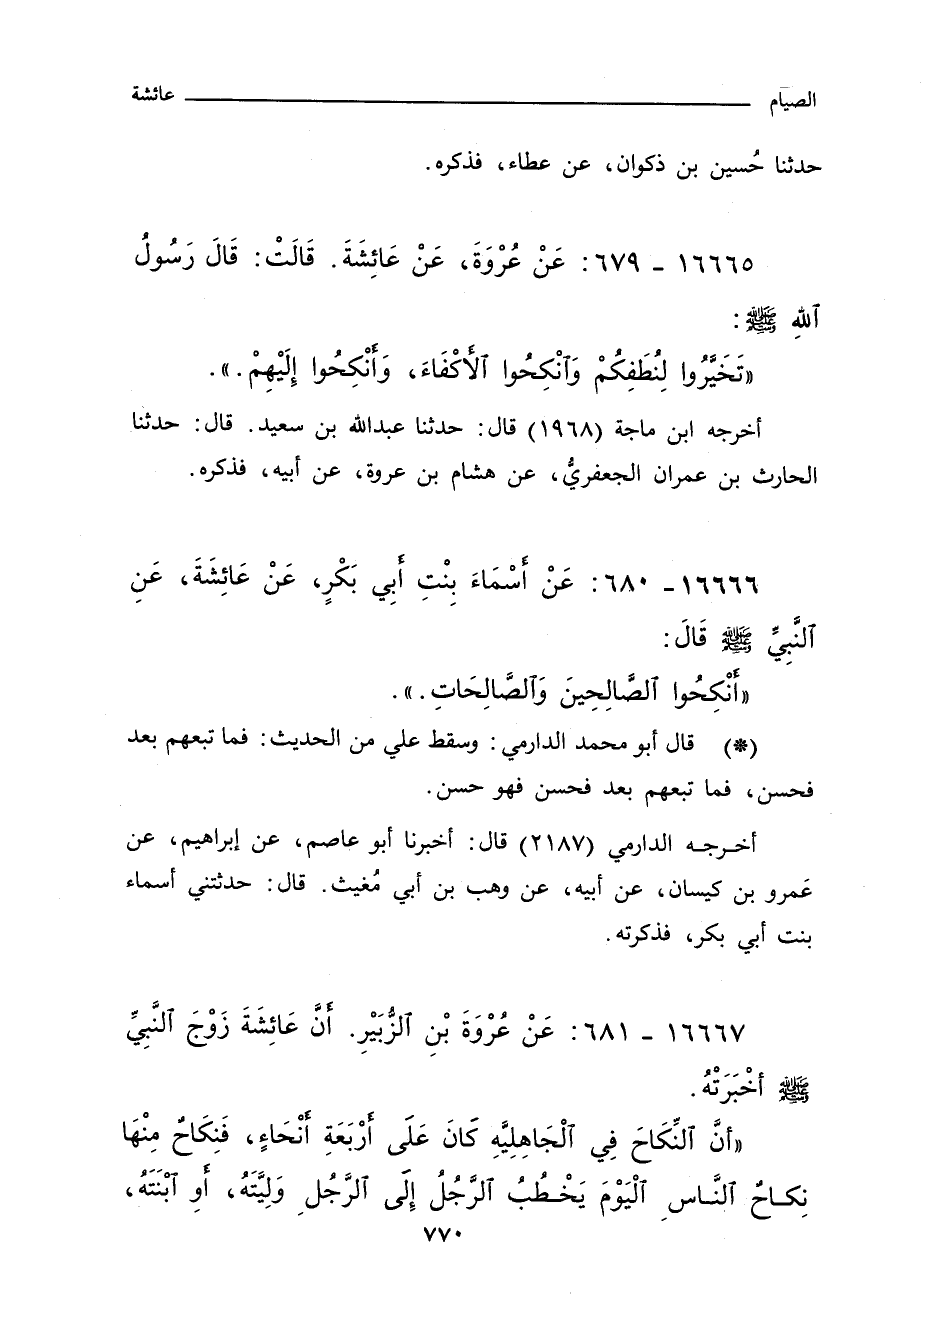 الصيام عائشة
حدثنا حُسين بن ذكوان، عن عطاء، فذكره.
١٦٦٦٥ ـ ٦٧٩: عَنْ عُرْوَةَ، عَنْ عَائِشَةَ. قَالَتْ: قَالَ رَسُولُ
ٱللهِ ﷺ:
«تَخَيَّرُوا لِنُطَفِكُمْ وَٱنْكِحُوا ٱلْأَكْفَاءَ، وَأَنْكِحُوا إِلَيْهِمْ.».
أخرجه ابن ماجة (١٩٦٨) قال: حدثنا عبدالله بن سعيد. قال: حدثنا
الحارث بن عمران الجعفريُّ، عن هشام بن عروة، عن أبيه، فذكره.
١٦٦٦٦ـ ٦٨٠: عَنْ أَسْمَاءَ بِنْتِ أَبِي بَكْرٍ، عَنْ عَائِشَةَ، عَنِ
ٱلنَّبِيِّ ﷺ قَالَ:
«أَنْكِحُوا ٱلصَّالِحِينَ وَٱلصَّالِحَاتِ.».
(*) قال أبو محمد الدارمي: وسقط علي من الحديث: فما تبعهم بعد
فحسن، فما تبعهم بعد فحسن فهو حسن.
أخرجه الدارمي (٢١٨٧) قال: أخبرنا أبو عاصم، عن إبراهيم، عن
عَمرو بن كيسان، عن أبيه، عن وهب بن أبي مُغيث. قال: حدثتني أسماء
بنت أبي بكر، فذكرته.
١٦٦٦٧ ـ ٦٨١: عَنْ عُرْوَةَ بْنِ ٱلزُّبَيْرِ. أَنَّ عَائِشَةَ زَوْجَ ٱلنَّبِيِّ
ﷺ أخْبَرَتْهُ.
«أنَّ ٱلنِّكَاحَ فِي ٱلْجَاهِلِيَّهِ كَانَ عَلَى أَرْبَعَةِ أَنْحَاءٍ، فَنِكَاحٌ مِنْهَا
نِكَاحُ ٱلنَّاسِ ٱلْيَوْمَ يَخْطُبُ ٱلرَّجُلُ إِلَى ٱلرَّجُلِ وَلِيَّتَهُ، أَوِ ٱبْنَتَهُ،
٧٧٠